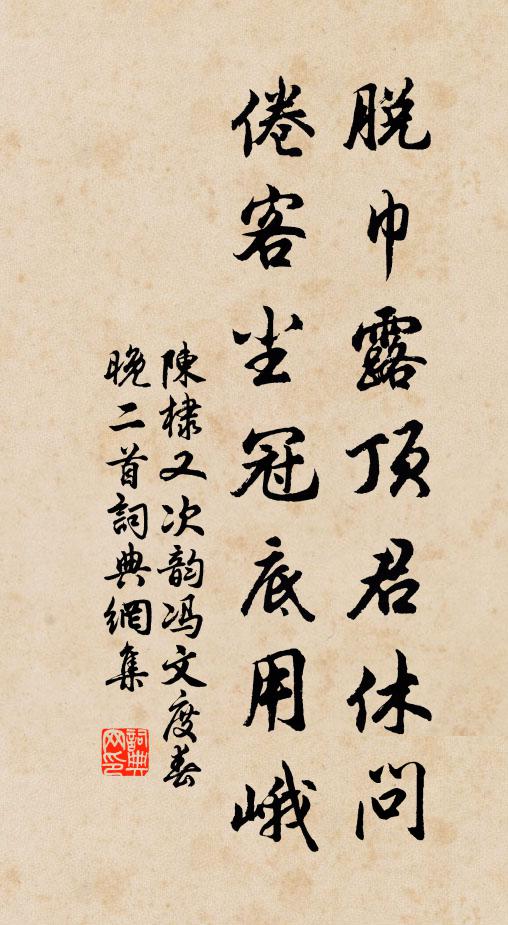 脱巾露顶君休问
倦客尘冠底用峨
陳棣又次韵冯文度春
晚二首詞典網集
詞典
网印